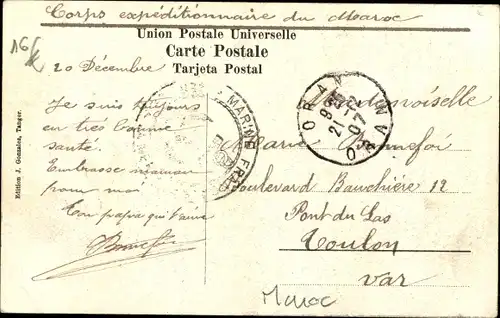 Corps expéditionnaire du Maroc
Union Postale Universelle
Carte Postale
Tarjeta Postal
16
20 Décembre
Je suis toujours
en très bonne
santé.
Embrasse maman
pour moi
Ton papa qui t'aime
Bonnefoi
Edition J. Gonzalez, Tanger.
MARINE FRA
ORAN
ORAN
21-12
07
Mademoiselle
Marie Bonnefoi
Boulevard Bauchière 12
Pont du Las
Toulon
Var
Maroc